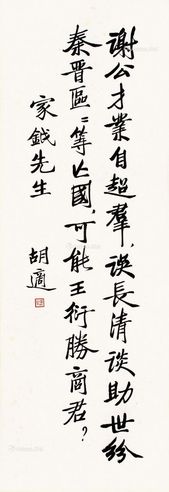 謝公才業自超羣,誤長清談助世紛
秦晉區區等亡國,可能王衍勝商君?
家鉞先生
胡適